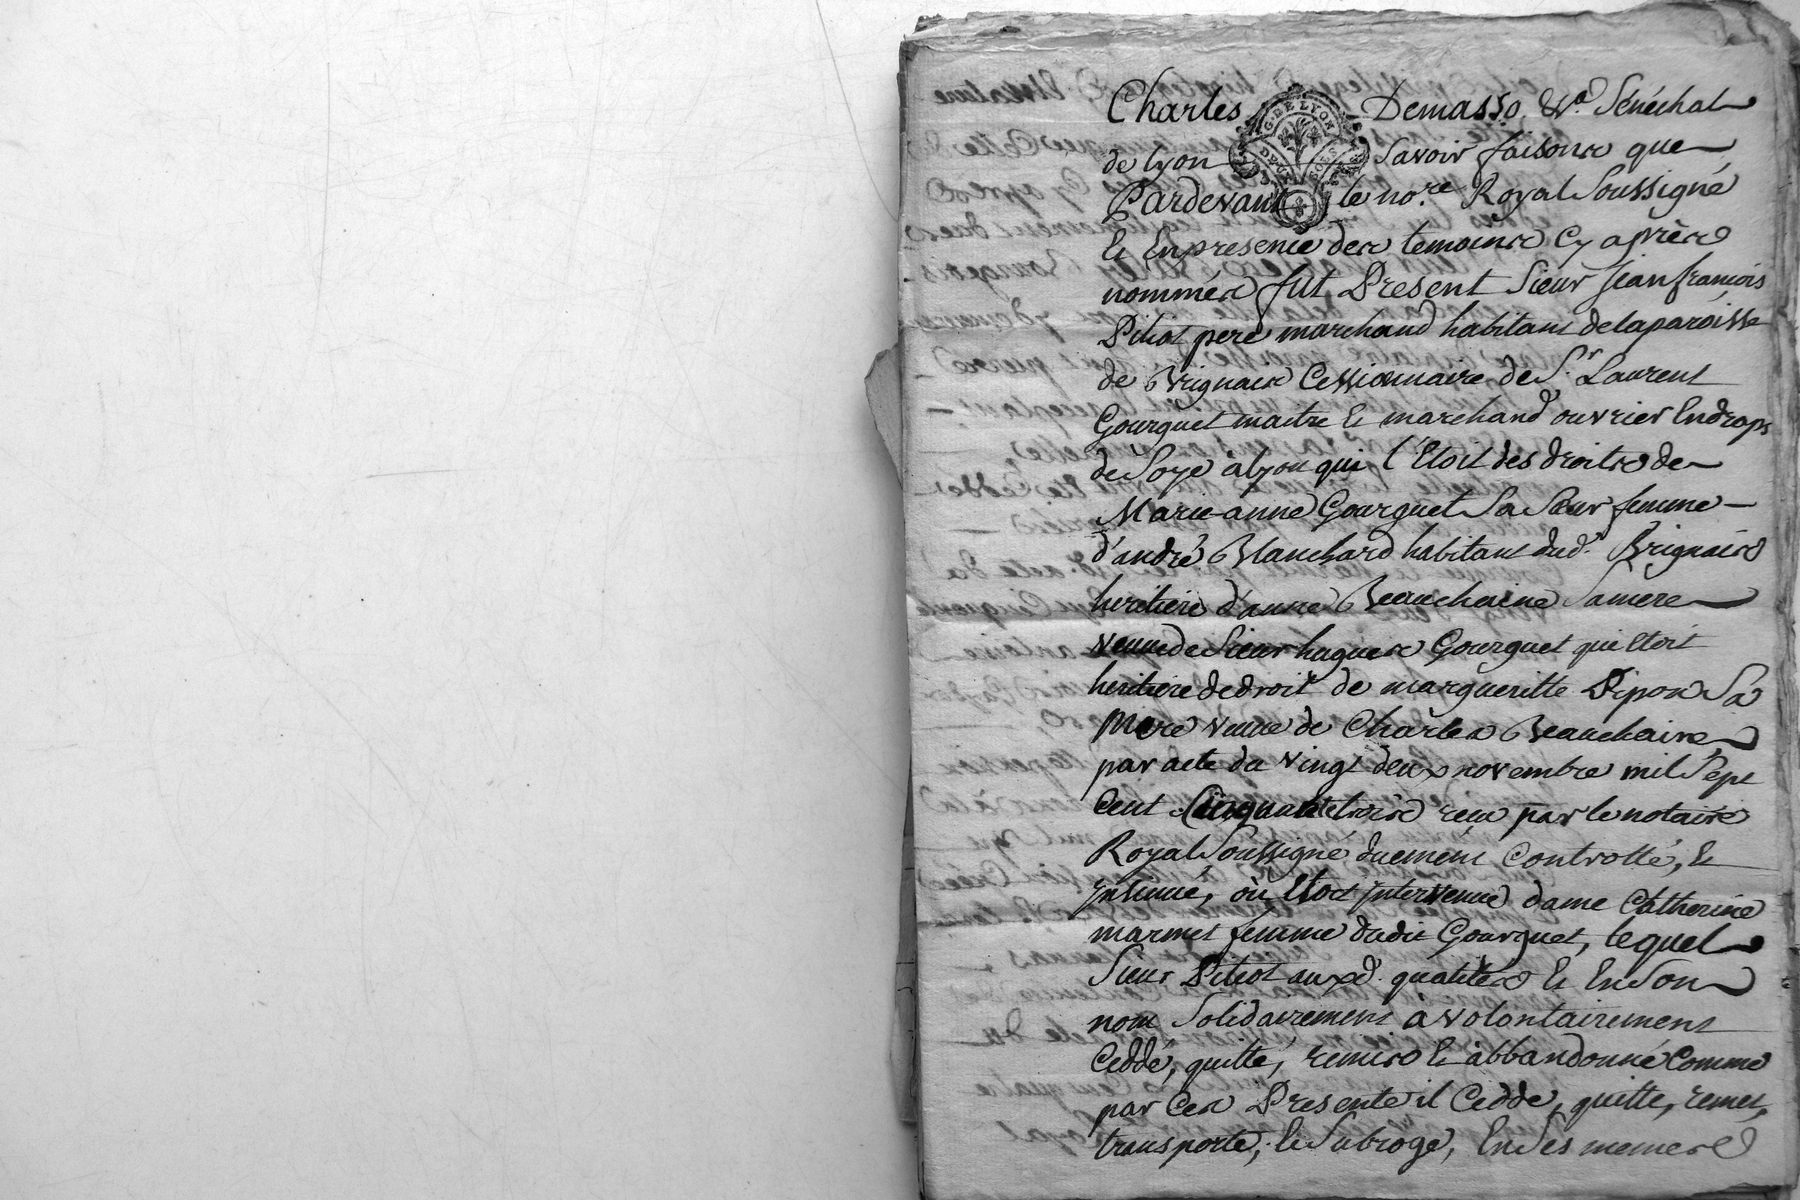 Charles Demasso &ca. Sénéchal
de lyon savoir faisons que
Pardevant le nore. Royal Soussigné
G. DE LYON
DEUX SOLS
& En presence des temoins Cy aprés
nommés fut Present Sieur Jean françois
Pitiot pere marchand habitant de la paroisse
de Brignais Cessionnaire de Sr. Laurent
Gourguet maitre & marchand ouvrier En draps
de Soye à lyon qui l'Etoit des droits de
Marie-anne Gourguet Sa Sœur femme
d'andré Blanchard habitant dud. Brignais
heritiere d'anne Beauchaine Sa mere
veuve de Sieur hugues Gourguet qui Etoit
heritiere de droit de margueritte Sa
Mere veuve de Charles Beauchaine
par acte du vingt deux novembre mil Sept
Cent Cinquante trois reçu par le notaire
Royal Soussigné duement Controllé, &
jnsinué, où Etoit jntervenue dame Catherine
marmet femme dudit Gourguet, lequel
Sieur Pitiot auxd. qualités & En Son
nom Solidairement à volontairement
Ceddé, quitté, remis & abbandonné Comme
par Ces Presente il Cedde, quitte, remet,
transporte, & Subroge, En Ses memes